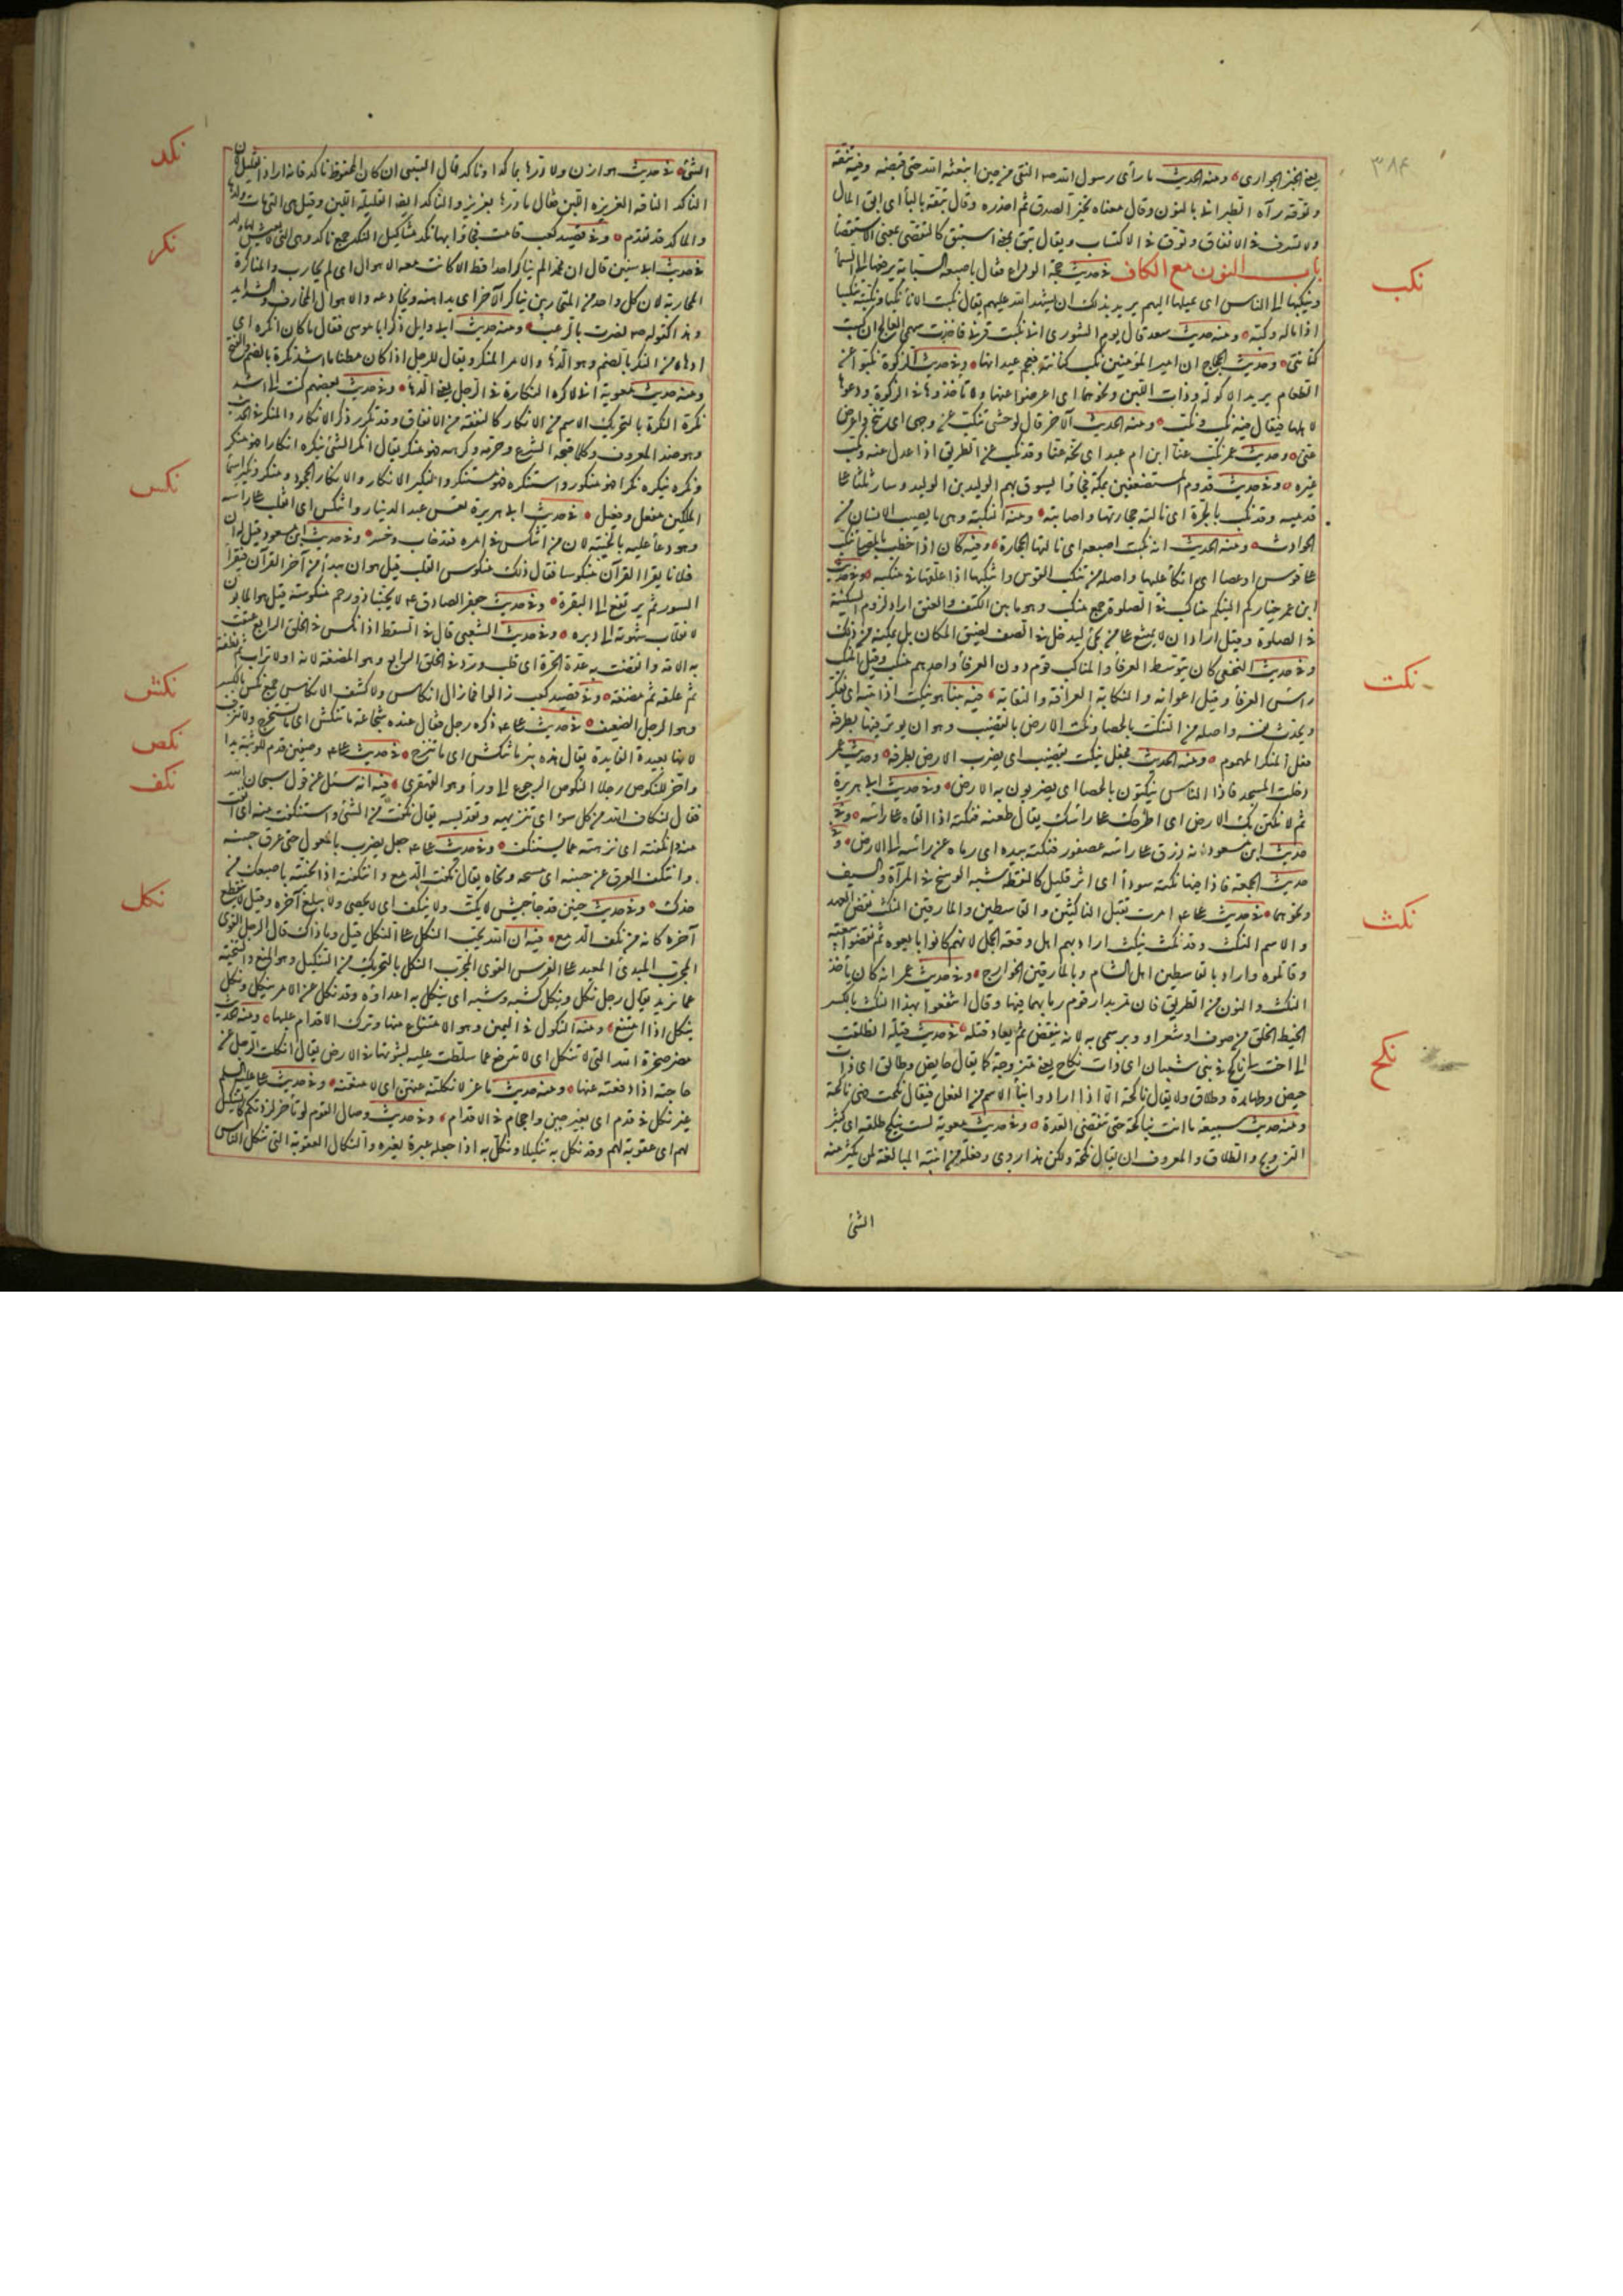 ٣٨٤
يعنى الخبز الحوارى ومنه الحديث ما رأى رسول الله صه النقى من حين ابتعثه الله حتى قبضه وفيه تنقه
وتوقه رآه الطبرانى بالنون وقال معناه تخير الصدق ثم احذره وقال تبقه بالباء اى ابق المال
ولا تسرف فى الانفاق وتوق فى الاكتساب ويقال تبق بمعنى استبق كالتقصى بمعنى الاستقصاء
باب النون مع الكاف فى حديث حجة الوداع فقال باصبعه السبابة يرفعها الى السماء
وينكبها الى الناس اى يميلها اليهم يريد بذلك ان يشهد الله عليهم يقال نكبت الاناء نكبا ونكبته تنكيبا
اذا اماله وكبه ومنه حديث سعد قال يوم الشورى انى نكبت قرنى فاخذت سهمى الفالج اى كببت
كنانتى وحديث الحجاج ان امير المؤمنين نكب كنانته فعجم عيدانها وفى حديث الزكوة نكبوا عن
الطعام يريد الاكولة وذات اللبن ونحوهما اى اعرضوا عنها ولا تأخذوها فى الزكوة ودعوها
لاهلها فيقال فيه نكب ونكب ومنه الحديث الآخر قال لوحشى تنكب عن وجهى اى تنح واعرض
عنى وحديث عمر نكب عنا ابن ام عبد اى نحه عنا وقد نكب عن الطريق اذا عدل عنه ونكب
غيره وفى حديث قدوم المستضعفين بمكة فجاؤا يسوق بهم الوليد بن الوليد وسار ثلثا على
قدميه وقد نكب بالحرة اى نالته حجارتها واصابته ومنه النكبة وهى ما يصيب الانسان من
الحوادث ومنه الحديث انه نكبت اصبعه اى نالتها الحجارة وفيه كان اذا خطب بالمصلى تنكب
على قوس او عصا اى اتكأ عليها واصله من تنكب القوس وانتكبها اذا علقها فى منكبه وفى حديث
ابن عمر خياركم الينكم مناكب فى الصلوة جمع منكب وهو ما بين الكتف والعنق اراد لزوم السكينة
فى الصلوة وقيل اراد ان لا يمتنع على من يجئ ليدخل فى الصف لضيق المكان بل يمكنه من ذلك
وفى حديث النخعى كان يتوسط العرفاء والمناكب قوم دون العرفاء واحدهم منكب وقيل المنكب
رأس العرفاء وقيل اعوانه والنكابة العرافة والنقابة فيه بينا هو ينكت اذ انتبه اى يفكر
ويحدث نفسه واصله من النكت بالحصا ونكت الارض بالقضيب وهو ان يؤثر فيها بطرفه
فعل المفكر المهموم ومنه الحديث فجعل ينكت بقضيب اى يضرب الارض بطرفه وحديث عمر
دخلت المسجد فاذا الناس ينكتون بالحصا اى يضربون به الارض وفى حديث ابى هريرة
ثم لانكتن بك الارض اى اطرحك على رأسك يقال طعنه فنكته اذا القاه على رأسه وفى
حديث ابن مسعود انه ذرق على رأسه عصفور فنكته بيده اى رماه عن رأسه الى الارض وفى
حديث الجمعة فاذا فيها نكتة سوداء اى اثر قليل كالنقطة شبه الوسخ فى المرآة والسيف
ونحوهما فى حديث على عه امرت بقتل الناكثين والقاسطين والمارقين النكث نقض العهد
والاسم النكث وقد نكث ينكث اراد بهم اهل وقعة الجمل لانهم كانوا بايعوه ثم نقضوا بيعته
وقاتلوه واراد بالقاسطين اهل الشام وبالمارقين الخوارج وفى حديث عمر انه كان يأخذ
النكث والنوى من الطريق فان مر بدار قوم رمى بهما فيها وقال انتفعوا بهذا النكث بالكسر
الخيط الخلق من صوف او شعر او وبر سمى به لانه ينقض ثم يعاد فتله فى حديث قيلة انطلقت
الى اخت لى ناكح فى بنى شيبان اى ذات نكاح يعنى متزوجة كما يقال حايض وطالق اى ذات
حيض وطهارة وطلاق ولا يقال ناكحة الا اذا ارادوا بناء الاسم من الفعل فيقال نكحت فهى ناكحة
ومنه حديث سبيعة ما انت بناكحة حتى تنقضى العدة وفى حديث معوية لست بنكح طلقة اى كثير
التزوج والطلاق والمعروف ان يقال نكحة ولكن هذا روى وفعلة من ابنية المبالغة لمن يكثر منه
الشئ
نكب
نكت
نكث
نكح
الشئ فى حديث هوازن ولا درها بماكد او ناكد قال القتيبى ان كان المحفوظ ناكد فانه اراد القليل لان
الناكد الناقة الغزيرة اللبن فقال ما درها بغزير والناكد ايضا القليلة اللبن وقيل هى التى مات ولدها
والماكد قد تقدم وفى قصيد كعب قامت فجاوبها نكد مثاكيل النكد جمع ناكد وهى التى لا يعيش لها ولد
فى حديث ابى سفين قال ان محمدا لم يناكر احدا قط الا كانت معه الاهوال اى لم يحارب والمناكرة
المحاربة لان كل واحد من المتحاربين يناكر الآخر اى يداهيه ويخادعه والاهوال المخاوف والشدايد
وهذا كقوله صه نصرت بالرعب ومنه حديث ابى وايل ذكر ابا موسى فقال ما كان انكره اى
ادهاه من النكر بالضم وهو الدهاء والامر المنكر ويقال للرجل اذا كان فطنا ما اشد نكره بالضم والفتح
ومنه حديث معوية انى لاكره النكارة فى الرجل يعنى الدهاء وفى حديث بعضهم كنت لى اشد
نكرة النكرة بالتحريك الاسم من الانكار كالنفقة من الانفاق وقد تكرر ذكر الانكار والمنكر فى الحديث
وهو ضد المعروف وكلما قبحه الشرع وحرمه وكرهه فهو منكر يقال انكر الشئ ينكره انكارا فهو منكر
ونكره ينكره نكرا فهو منكور واستنكره فهو مستنكر والنكير الانكار والانكار الجحود ومنكر ونكير اسما
الملكين مفعل وفعيل فى حديث ابى هريرة تعس عبد الدينار وانتكس اى انقلب على رأسه
وهو دعاء عليه بالخيبة لان من انتكس فى امره فقد خاب وخسر وفى حديث ابن مسعود قيل له ان
فلانا يقرأ القرآن منكوسا فقال ذلك منكوس القلب قيل هو ان يبدأ من آخر القرآن فيقرأ
السور ثم يرتفع الى البقرة وفى حديث جعفر الصادق عه لا يحبنا ذو رحم منكوسة قيل هو المأبون
لانقلاب شهوته الى دبره وفى حديث الشعبى قال فى السقط اذا نكس فى الخلق الرابع عتقت
به الامة وانقضت به عدة الحرة اى قلب ورد فى الخلق الرابع وهو المضغة لانه اولا تراب ثم نطفة
ثم علقة ثم مضغة وفى قصيد كعب زالوا فما زال انكاس ولا كشف الانكاس جمع نكس بالكسر
وهو الرجل الضعيف فى حديث على عه ذكره رجل فقال عنده شجاعة ما تنكش اى ما تستخرج ولا تنزف
لانها بعيدة الغاية يقال هذه بئر ما تنكش اى ما تنزح فى حديث على عه وصفين قدم للوثبة يدا
واخر للنكوص رجلا النكوص الرجوع الى وراء وهو القهقرى فيه انه سئل عن قول سبحان الله
فقال انكاف الله من كل سوء اى تنزيهه وتقديسه يقال نكفت من الشئ واستنكفت منه اى انفت
منه وانكفته اى نزهته عما يستنكف وفى حديث على عه جعل يضرب بالمعول حتى عرق جبينه
وانتكف العرق عن جبينه اى مسحه ونحاه يقال نكفت الدمع وانتكفته اذا نحيته باصبعك من
خدك وفى حديث حنين قد جاء جيش لا يكت ولا ينكف اى لا يحصى ولا يبلغ آخره وقيل لا ينقطع
آخره كانه من نكف الدمع فيه ان الله يحب النكل على النكل قيل وما ذاك قال الرجل القوى
المجرب المبدئ المعيد على الفرس القوى المجرب النكل بالتحريك من التنكيل وهو المنع والتنحية
عما يريد يقال رجل نكل ونكل كشبه وشبه اى ينكل به اعداؤه وقد نكل عن الامر ينكل ونكل
ينكل اذا امتنع ومنه النكول فى اليمين وهو الامتناع منها وترك الاقدام عليها ومنه الحديث
مضر صخرة الله التى لا تنكل اى لا تدفع عما سلطت عليه لثبوتها فى الارض يقال انكلت الرجل عن
حاجته اذا دفعته عنها ومنه حديث ماعز لانكلنه عنهن اى لامنعنه وفى حديث على عليه السلم
غير نكل فى قدم اى بغير جبن واحجام فى الاقدام وفى حديث وصال الصوم لو تأخر لزدتكم كالتنكيل
لهم اى عقوبة لهم وقد نكل به تنكيلا ونكل به اذا جعله عبرة لغيره والنكال العقوبة التى تنكل الناس
نكد
نكر
نكس
نكش
نكص
نكف
نكل